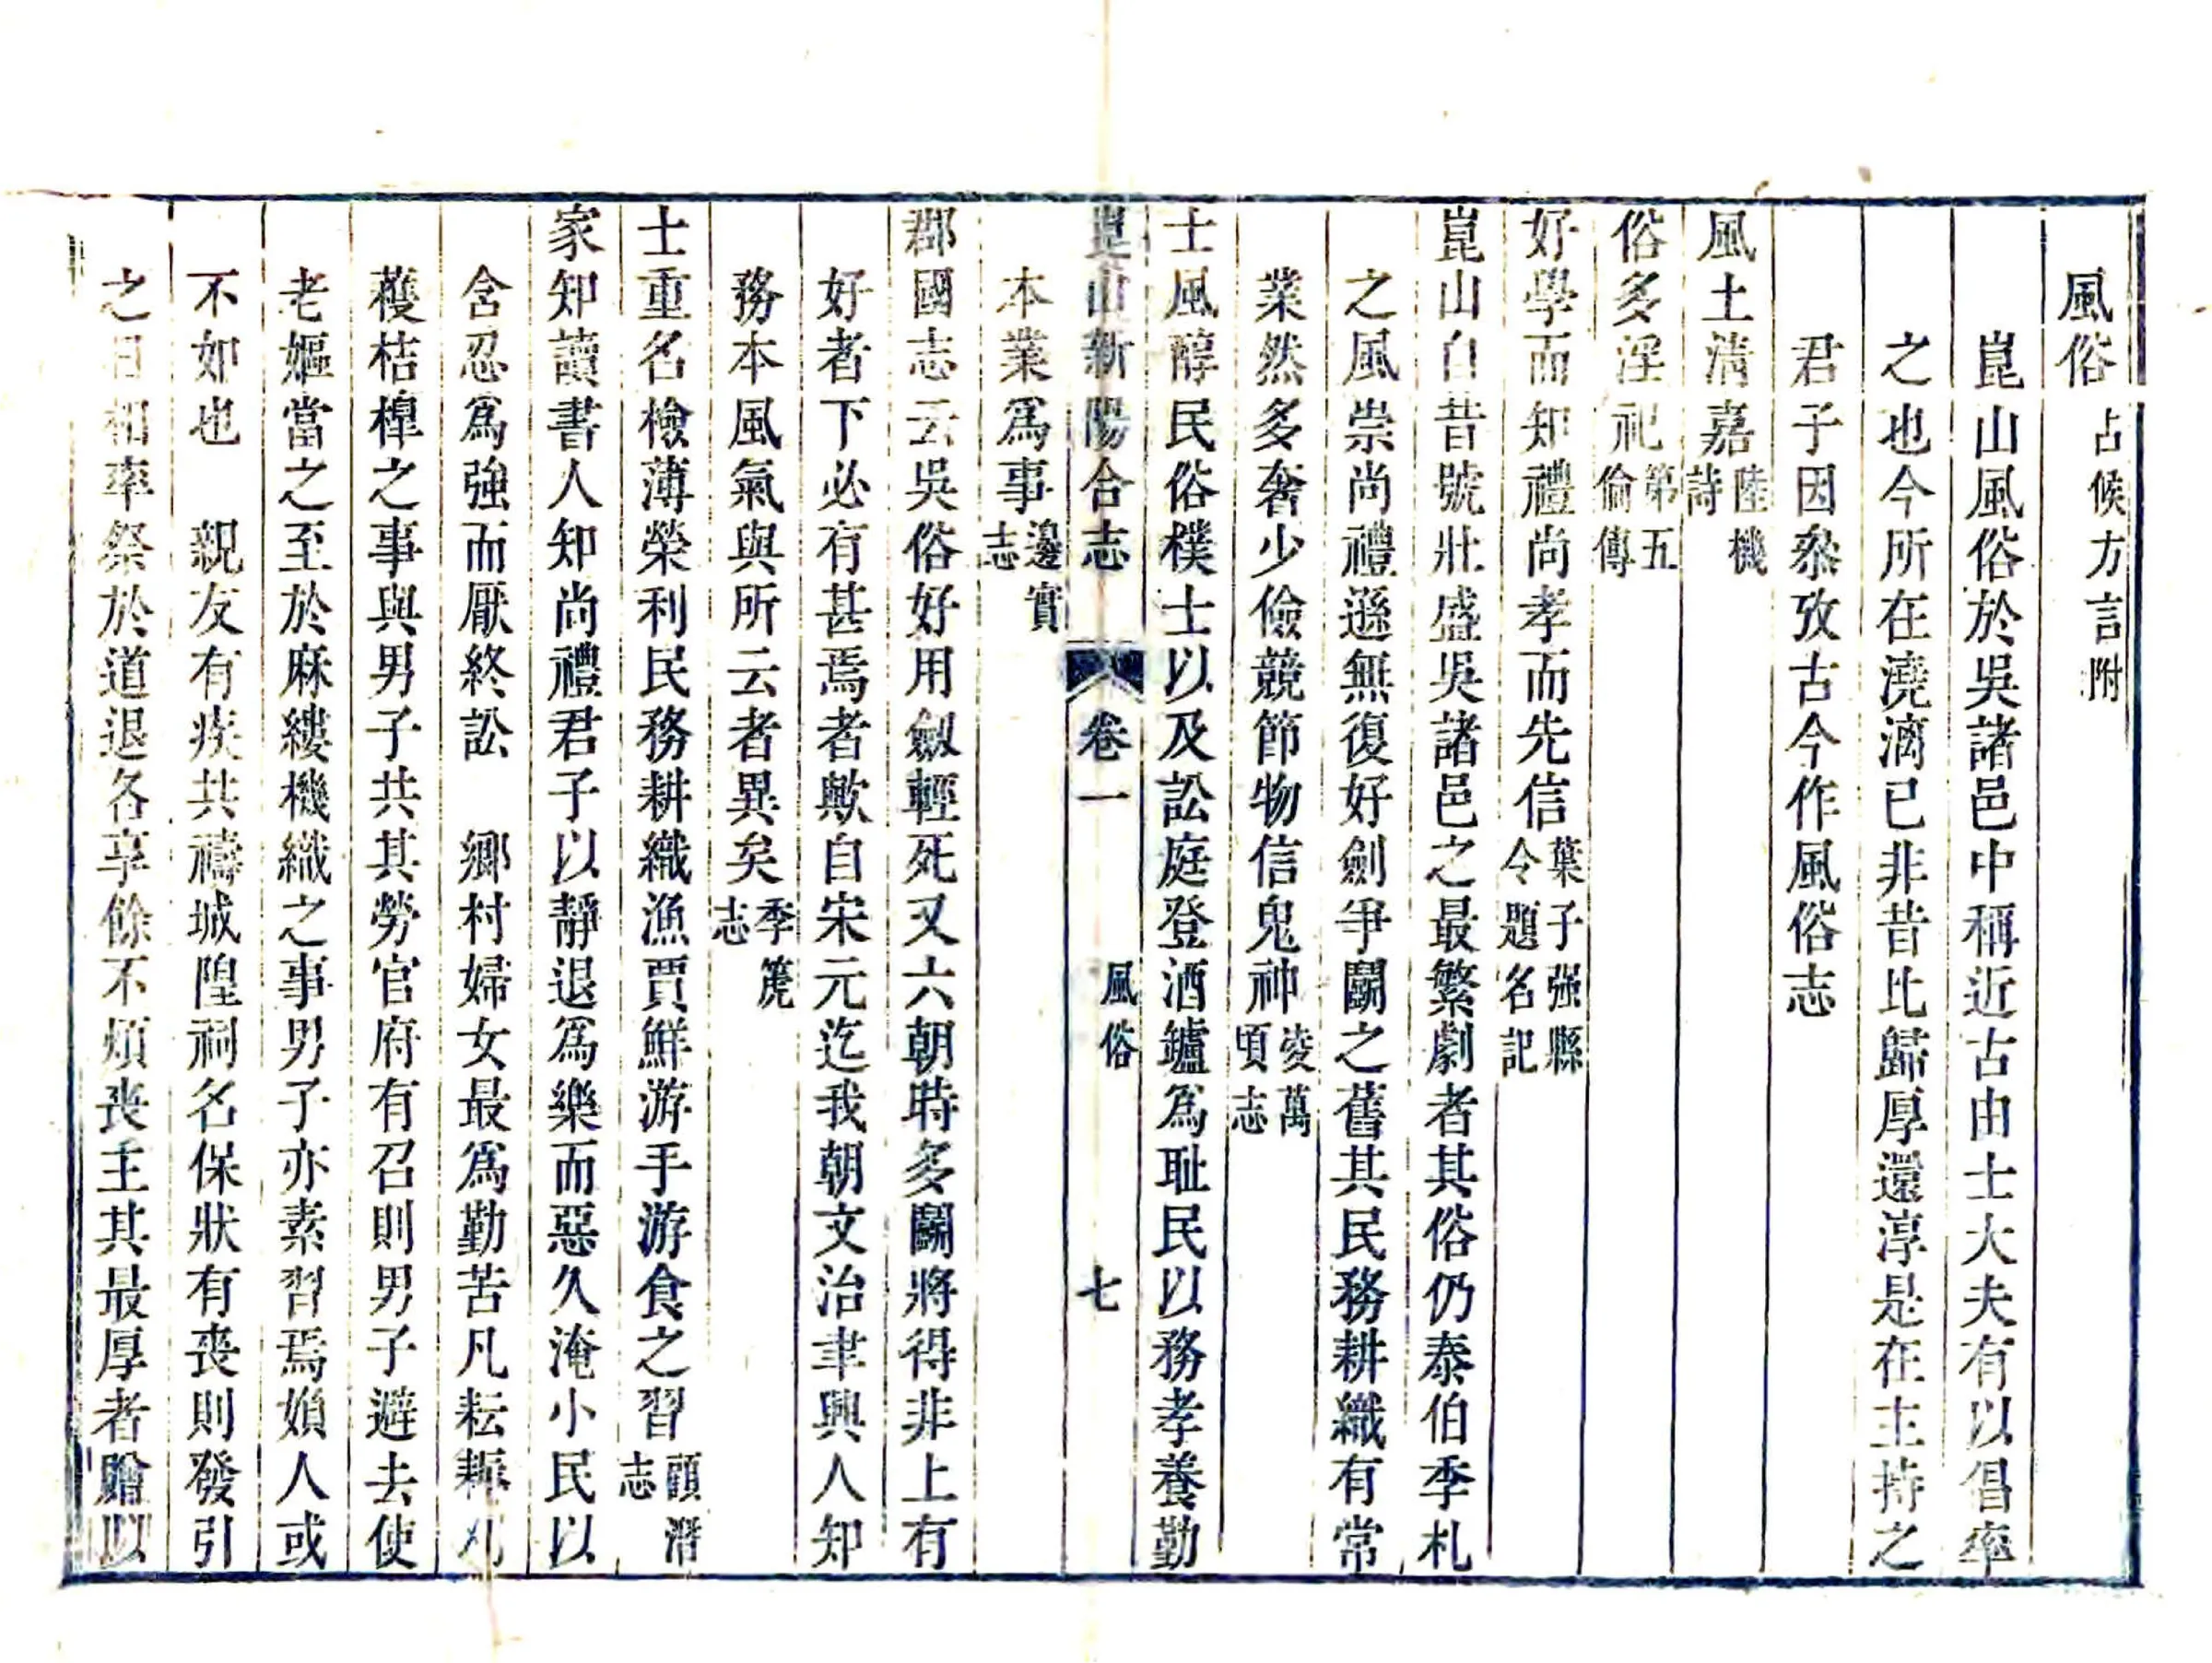 風俗占候方言附
崑山風俗於吳諸邑中稱近古由士大夫有以倡率
之也今所在澆漓已非昔比歸厚還淳是在主持之
君子因叅攷古今作風俗志
風土淸嘉陸機詩
俗多淫祀第五倫傳
好學而知禮尚孝而先信葉子强縣令題名記
崑山自昔號壯盛吳諸邑之最繁劇者其俗仍泰伯季札
之風崇尚禮遜無復好劍爭鬭之舊其民務耕織有常
業然多奢少儉競節物信鬼神凌萬頃志
士風醇民俗樸士以及訟庭登酒鑪爲耻民以務孝養勤
崑山新陽合志 卷一 風俗 七
本業爲事邊實志
郡國志云吳俗好用劔輕死又六朝時多鬭將得非上有
好者下必有甚焉者歟自宋元迄我朝文治聿興人知
務本風氣與所云者異矣季篪志
士重名檢薄榮利民務耕織漁賈鮮游手游食之習顧潛志
家知讀書人知尚禮君子以靜退爲樂而惡久淹小民以
含忍爲強而厭終訟 鄉村婦女最爲勤苦凡耘耨刈
穫桔槹之事與男子共其勞官府有召則男子避去使
老嫗當之至於麻縷機織之事男子亦素習焉嬾人或
不如也 親友有疾共禱城隍祠名保狀有喪則發引
之日相率祭於道退各享餘不煩喪主其最厚者贈以